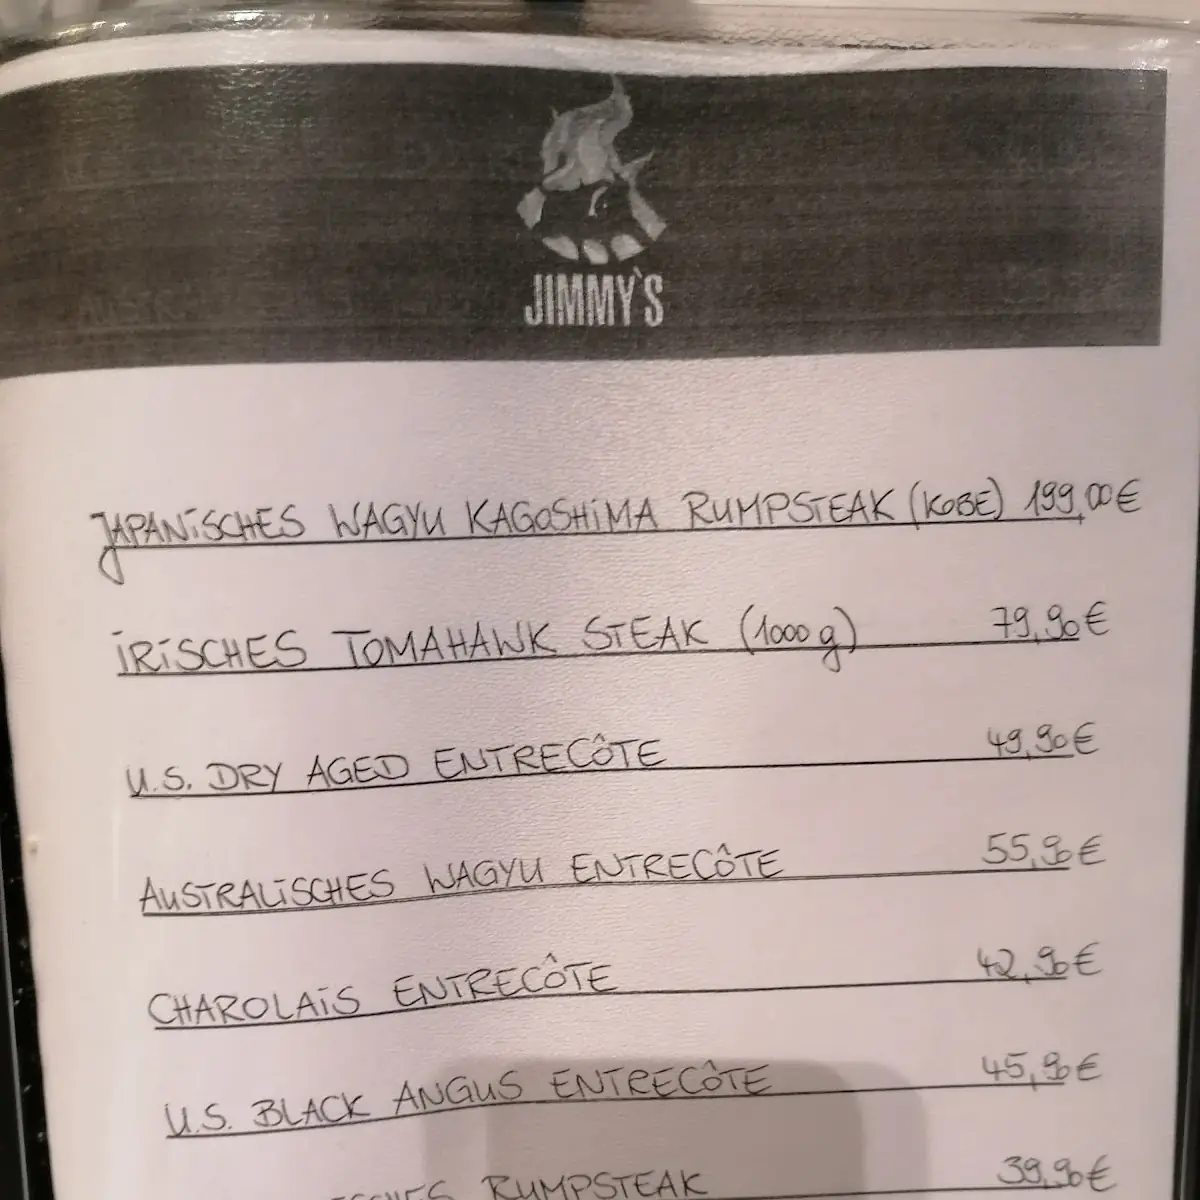 JIMMY`S
JAPANiSCHES WAGYU KAGOSHiMA RUMPSTEAK (KOBE) 199,00€
iRiSCHES TOMAHAWK STEAK (1000g) 79,90€
U.S. DRY AGED ENTRECÔTE 49,90€
AUSTRALiSCHES WAGYU ENTRECÔTE 55,90€
CHAROLAiS ENTRECÔTE 42,90€
U.S. BLACK ANGUS ENTRECÔTE 45,90€
RUMPSTEAK 39,90€